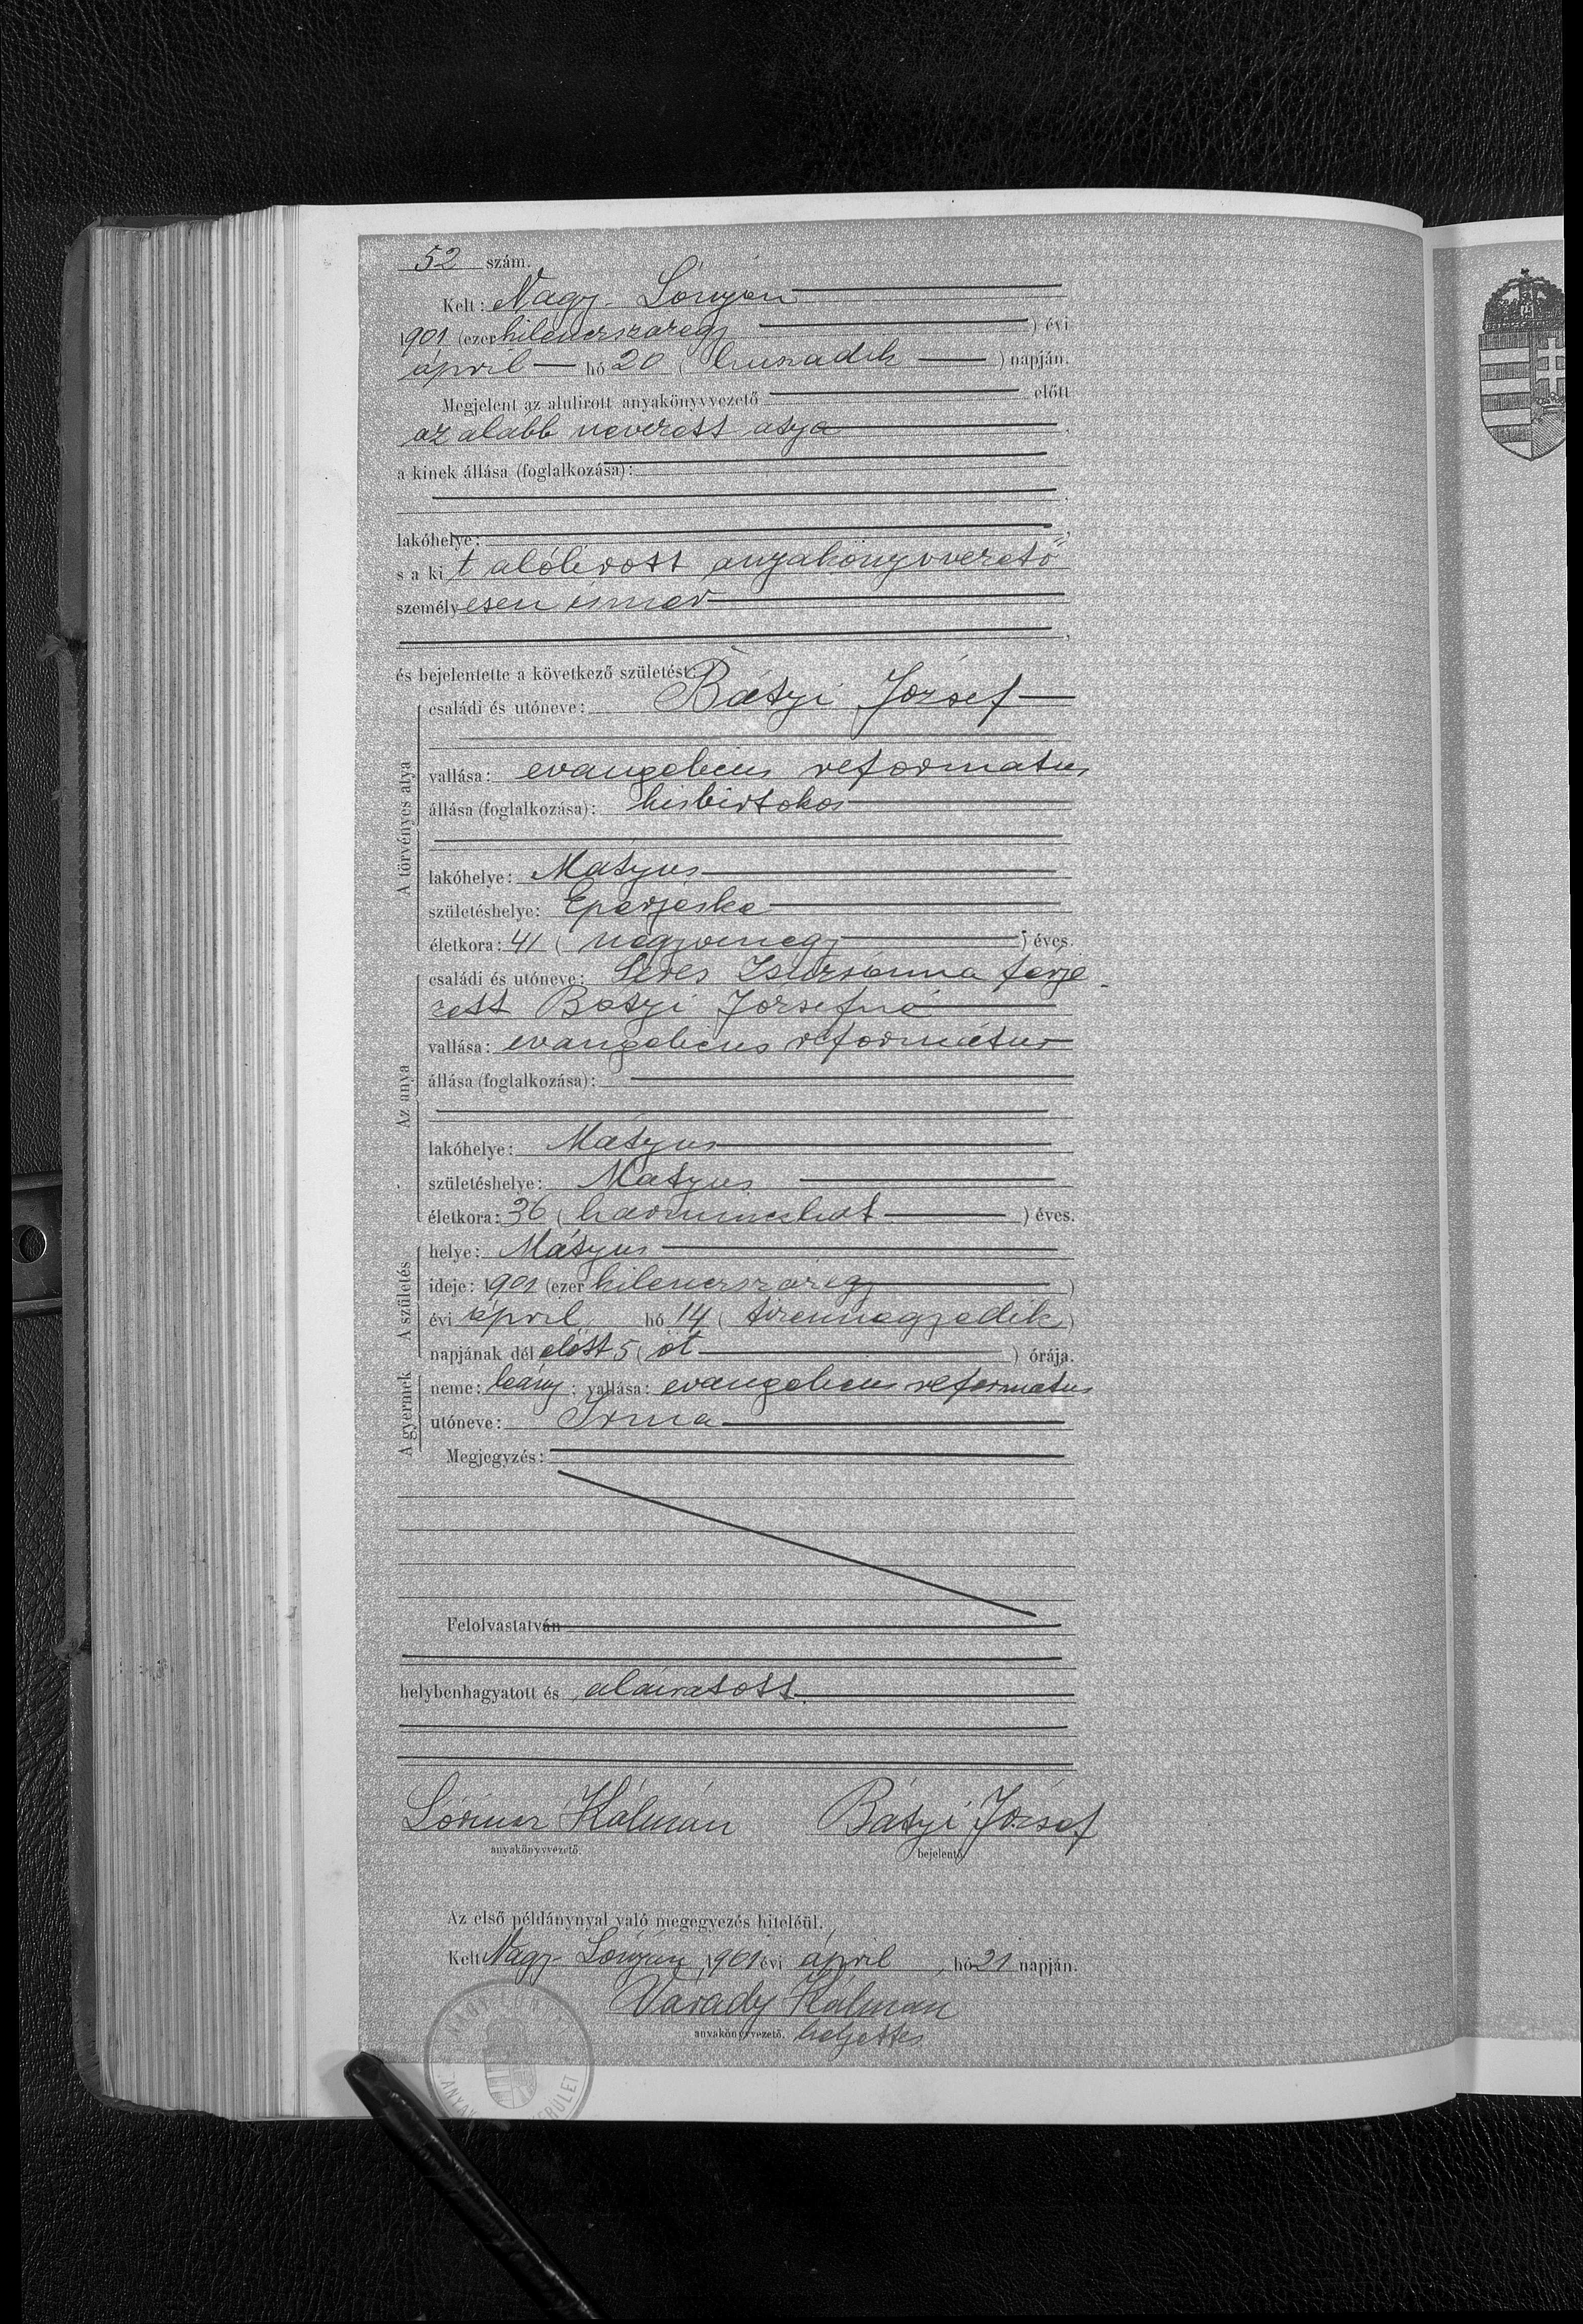 52 szám.
Kelt: Nagy-Lónyán
1901 (ezerkilenczszázegy) évi
ápril hó 20 (huszadik) napján.
Megjelent az alulirott anyakönyvvezető előtt
az alább nevezett atya
a kinek állása (foglalkozása):
lakóhelye:
s a ki t alólirott anyakönyvvezető
személyesen ismer
és bejelentette a következő születést:
A törvényes atya
családi és utóneve: Bátyi József
vallása: evangelicus reformatus
állása (foglalkozása): kisbirtokos
lakóhelye: Mátyus
születéshelye: Eperjeske
életkora: 41 (negyvenegy) éves.
Az anya
családi és utóneve: Seres Zsuzsánna férje
zett Bátyi Józsefné
vallása: evangelicus református
állása (foglalkozása):
lakóhelye: Mátyus
születéshelye: Mátyus
életkora: 36 (harminczhat) éves.
A születés
helye: Mátyus
ideje: 1901 (ezerkilenczszázegy)
évi ápril hó 14 (tizennegyedik)
napjának dél előtt 5 (öt) órája.
A gyermek
neme: leány; vallása: evangelicus reformatus
utóneve: Irma
Megjegyzés:
Felolvastatván
helybenhagyatott és aláiratott.
Lőrincz Kálmán Bátyi József
anyakönyvvezető. bejelentő.
Az első példánynyal való megegyezés hiteléül.
Kelt Nagy-Lónyán, 1901 évi ápril hó 21 napján.
Várady Kálmán
anyakönyvvezető. helyettes
NAGY-LÓNY
ANYAK ERÜLET